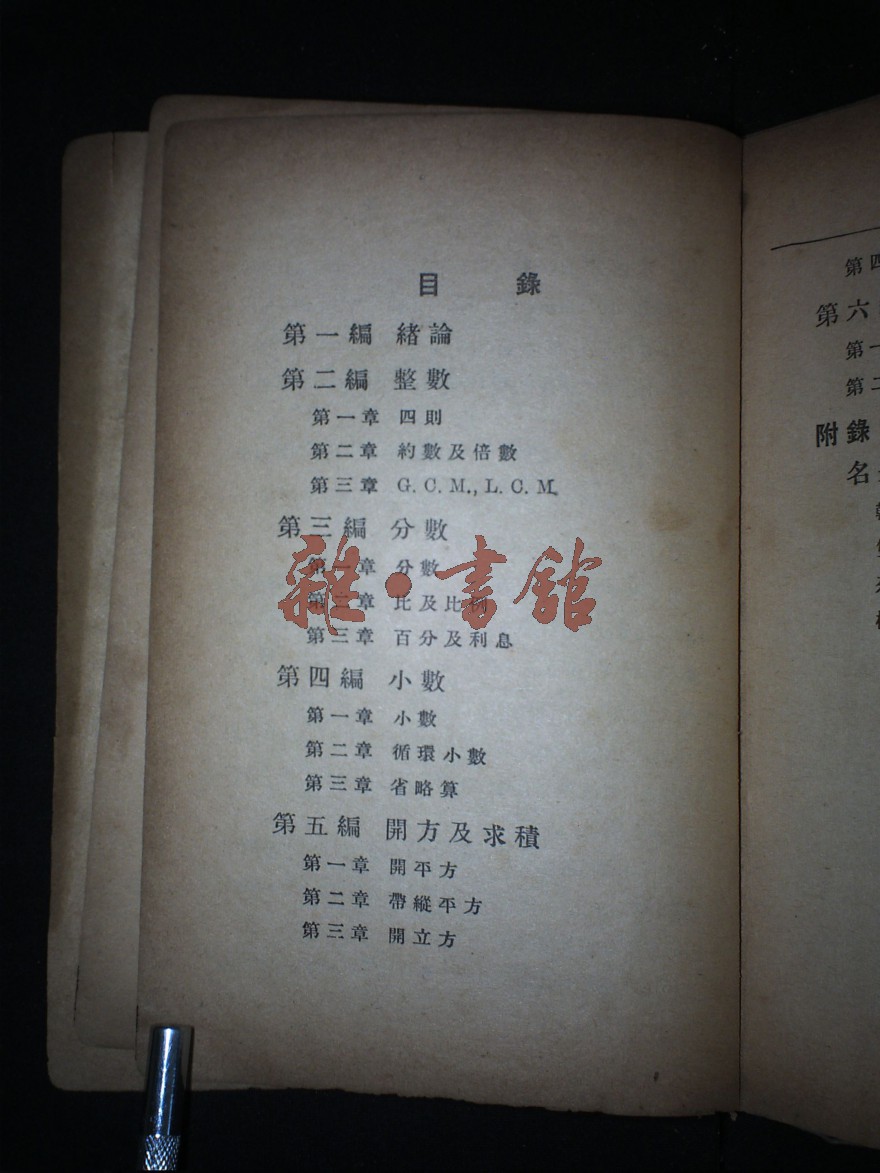 目 錄
第一編 緒論
第二編 整數
第一章 四則
第二章 約數及倍數
第三章 G.C.M., L.C.M.
第三編 分數
第一章 分數
第二章 比及比例
第三章 百分及利息
第四編 小數
第一章 小數
第二章 循環小數
第三章 省略算
第五編 開方及求積
第一章 開平方
第二章 帶縱平方
第三章 開立方
雜·書館
第四
第六
第一
第二
附錄
名